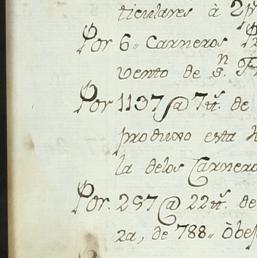 ticulares à 2p
Por 6. Carneros P
vento de s.n F
Por 1197@7 tt. de
produxo esta h
la delos Carnero
Por. 297@22 tt. de
2a, de 788. òbe